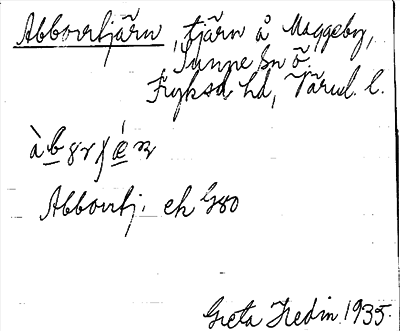 Abborrtjärn, tjärn å Maggeby,
Sunne sn ö.
Fryksd. hd, Värml. l.
Abborrtj. ek G80
Greta Hedin 1935.